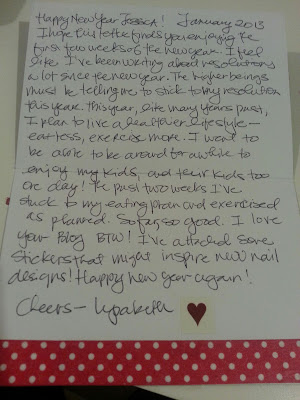 Happy New Year Jessica! January 2013
I hope this letter finds you enjoying the
first few weeks of the new year. I feel
like I've been writing about resolutions
a lot since the new year. The higher beings
must be telling me to stick to my resolution
this year. This year, like many years past,
I plan to live a healthier lifestyle -
eat less, exercise more. I want to
be able to be around for awhile to
enjoy my kids, and their kids too
one day! The past two weeks I've
stuck to my eating plan and exercised
as planned. So far, so good. I love
your Blog BTW! I've attached some
stickers that might inspire new nail
designs! Happy new year again!
Cheers -